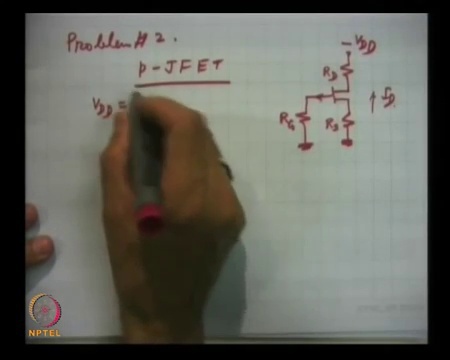 Problem # 2.
p-JFET
VDD =
-VDD
RD
ID
RG
RS
NPTEL